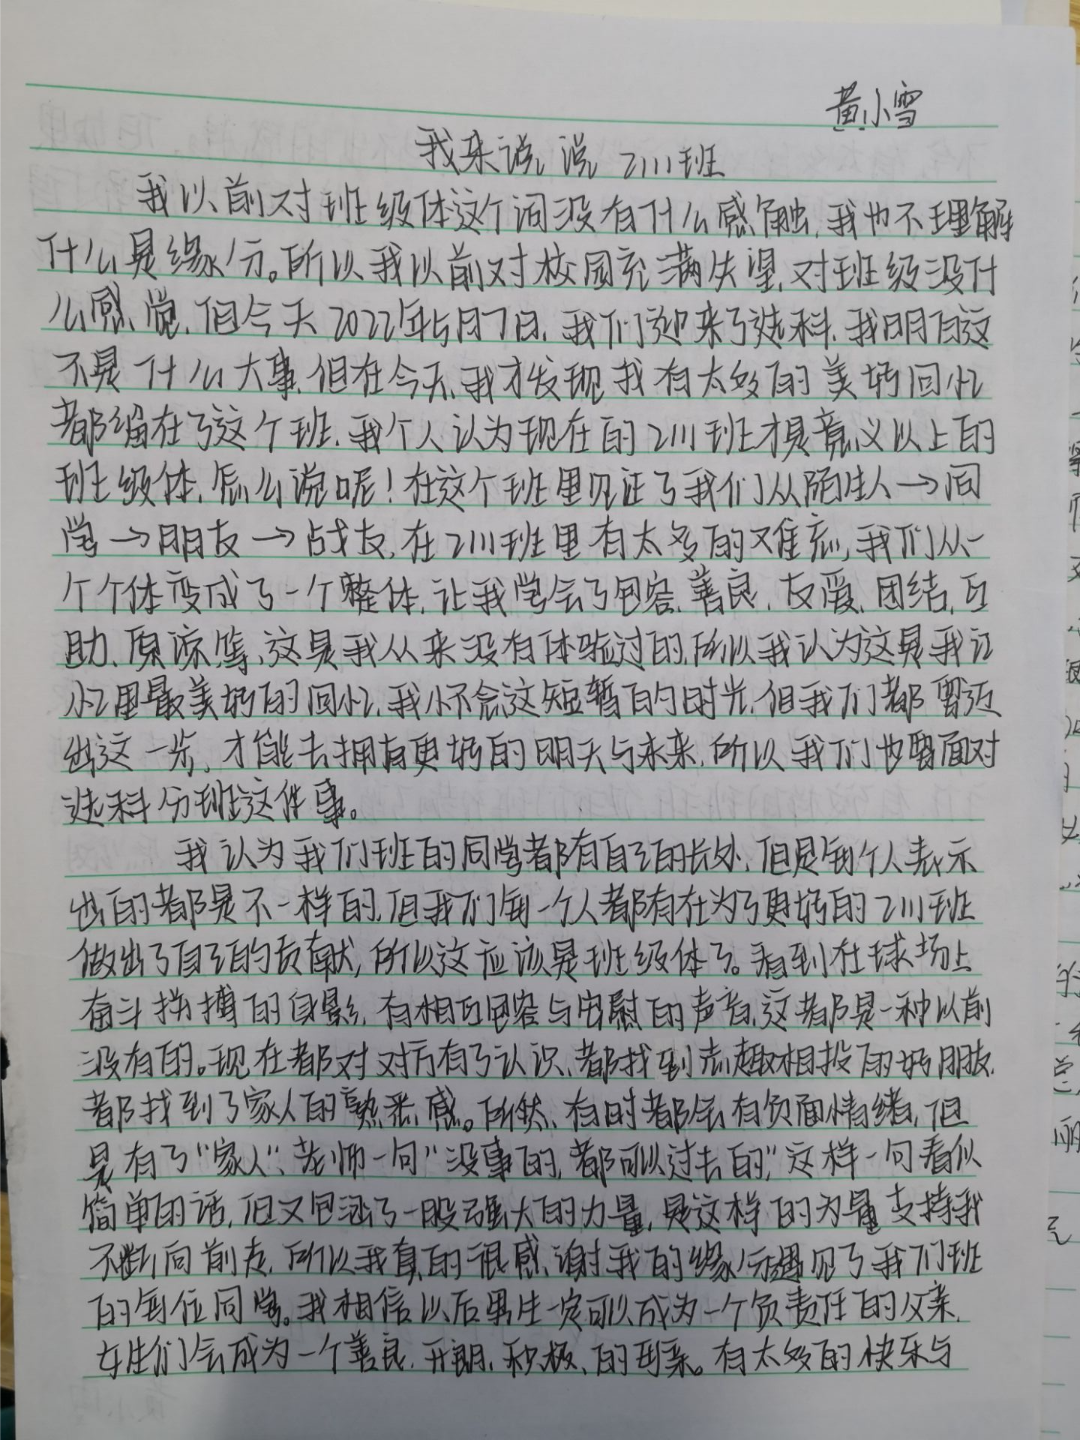 黄小雪
我来说说2111班
我以前对班级体这个词没有什么感触,我也不理解
什么是缘分。所以我以前对校园充满失望,对班级没什
么感觉,但今天2022年5月7日,我们迎来了选科,我明白这
不是什么大事,但在今天,我才发现我有太多的美好回忆
都留在了这个班,我个人认为现在的2111班才是意义以上的
班级体,怎么说呢!在这个班里见证了我们从陌生人→同
学→朋友→战友,在2111班里有太多的难忘,我们从一
个个体变成了一个整体,让我学会了包容、善良、友爱、团结、互
助、原谅等,这是我从来没有体验过的,所以我认为这是我记
忆里最美好的回忆,我怀念这短暂的时光,但我们都要迈
出这一步,才能去拥有更好的明天与未来,所以我们也要面对
选科分班这件事。
我认为我们班的同学都有自己的长处,但是每个人表示
出的都是不一样的,但我们每一个人都有在为了更好的2111班
做出了自己的贡献,所以这应该是班级体了。看到在球场上
奋斗拼搏的身影,有相互包容与安慰的声音,这都是一种以前
没有的。现在都对对方有了认识,都找到志趣相投的好朋友,
都找到了家人的熟悉感。所然,有时都会有负面情绪,但
是有了“家人”、老师一句“没事的,都可以过去的”这样一句看似
简单的话,但又包涵了一股强大的力量,是这样的力量支持我
不断向前走,所以我真的很感谢我的缘分遇见了我们班
的每位同学。我相信以后男生一定可以成为一个负责任的父亲,
女生们会成为一个善良、开朗、积极、的母亲。有太多的快乐与